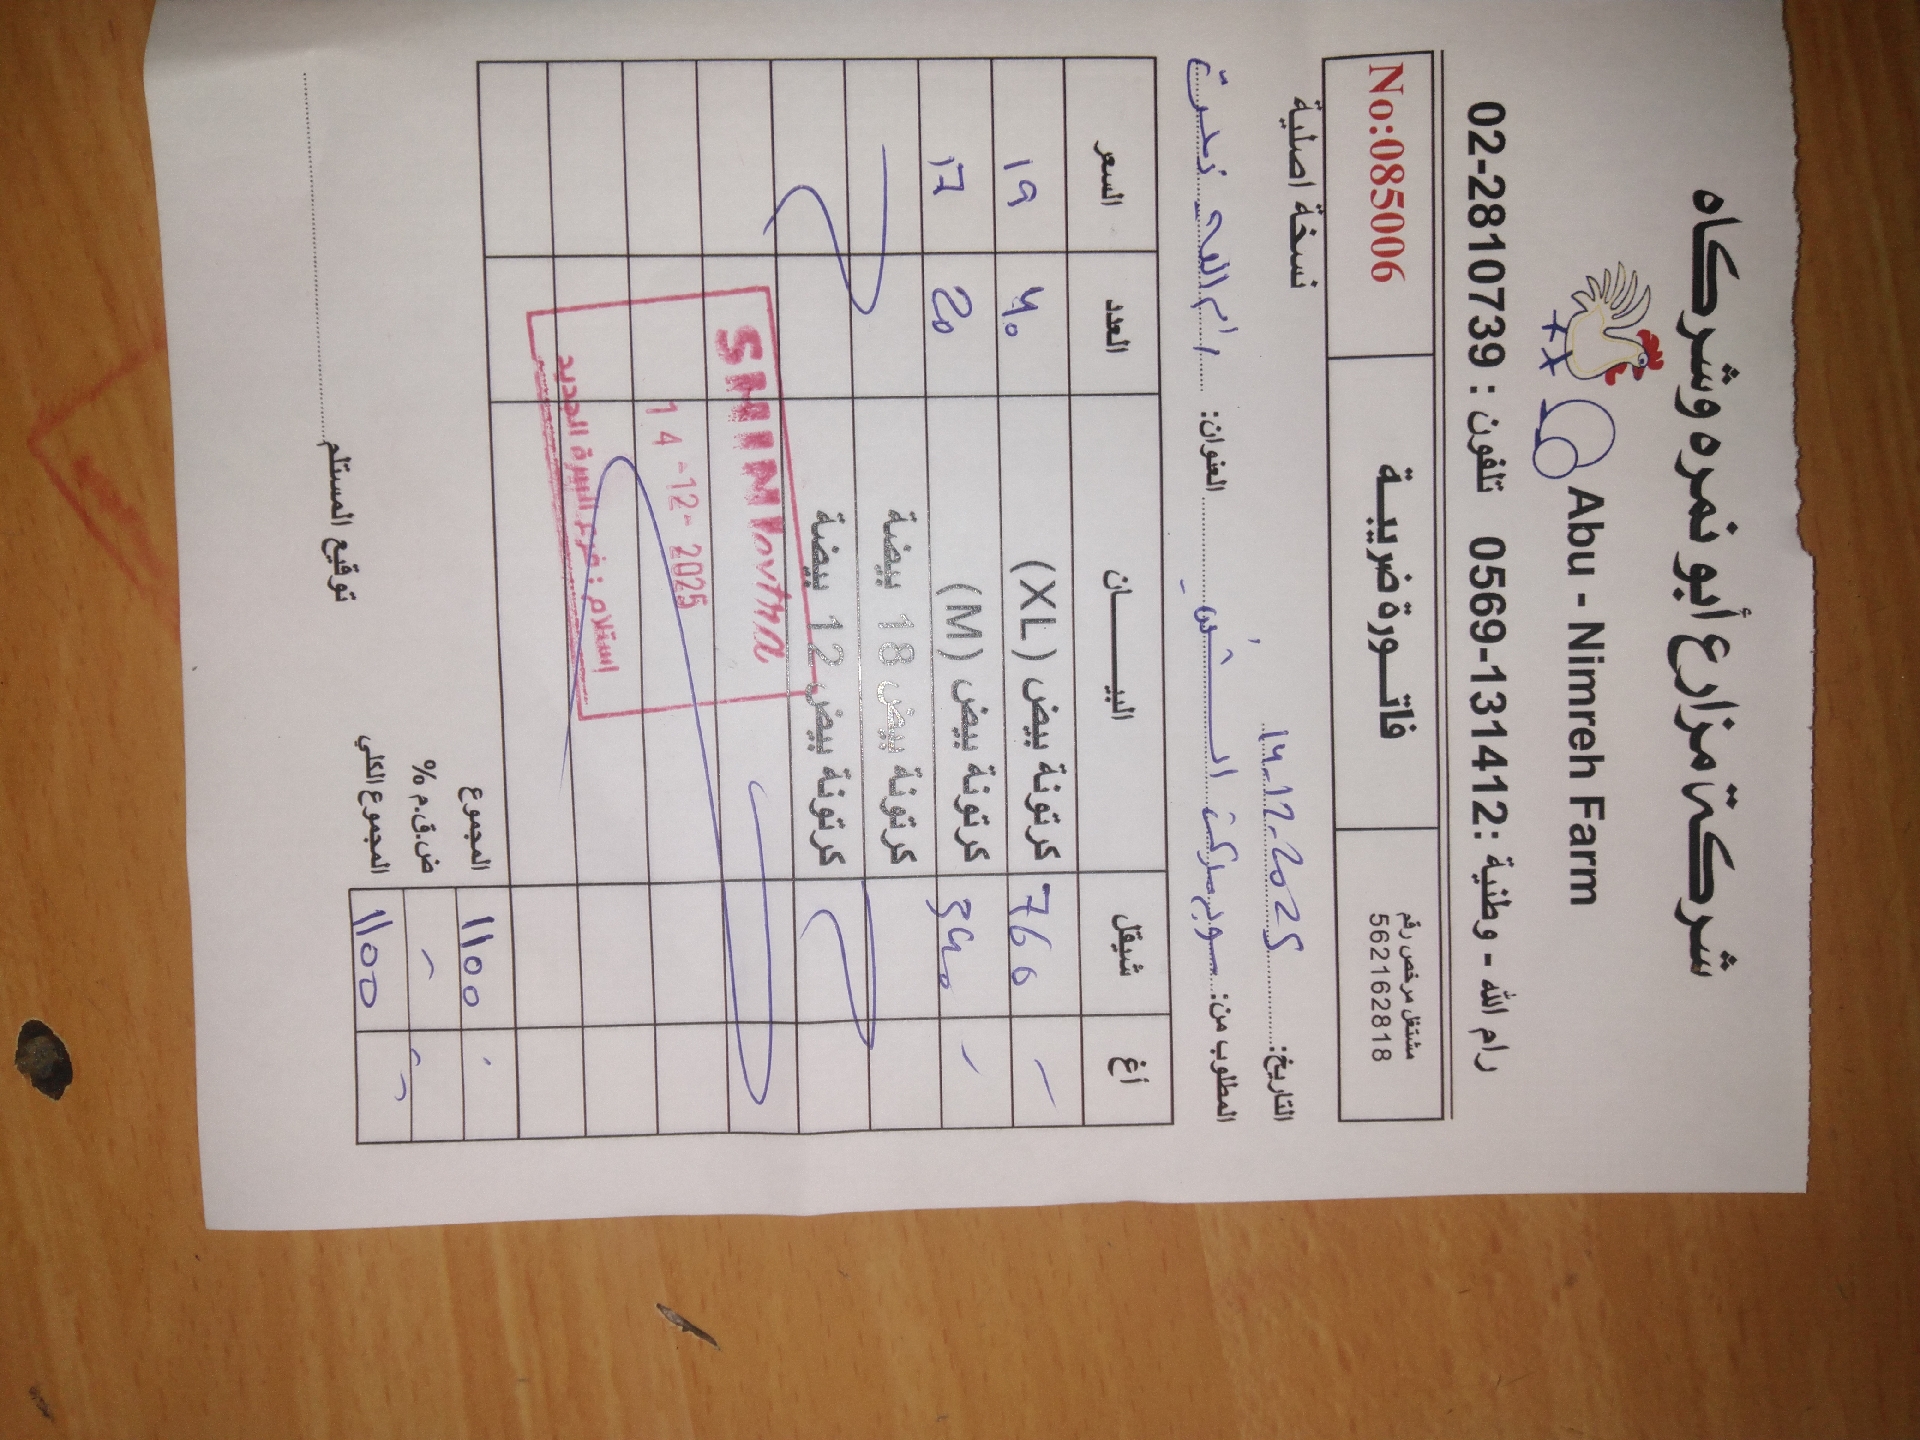 شركة مزارع أبو نمره وشركاه
Abu - Nimreh Farm
رام الله - وطنية : 0569-131412 تلفون : 02-2810739
مشتغل مرخص رقم
562162818
فاتـورة ضريبـة
No:085006
التاريخ: 14-12-2025
نسخة اصلية
المطلوب من: سوبر ماركت العنوان: رام الله
أغ شيقل البيـــان العدد السعر
- 760 كرتونة بيض (XL) 40 19
- 340 كرتونة بيض (M) 20 17
كرتونة بيض 18 بيضة
كرتونة بيض 12 بيضة
SHINI
14-12-2025
استلام : فرع البيرة الجديد
المجموع 1100
ض.ق.م % -
المجموع الكلي 1100
توقيع المستلم